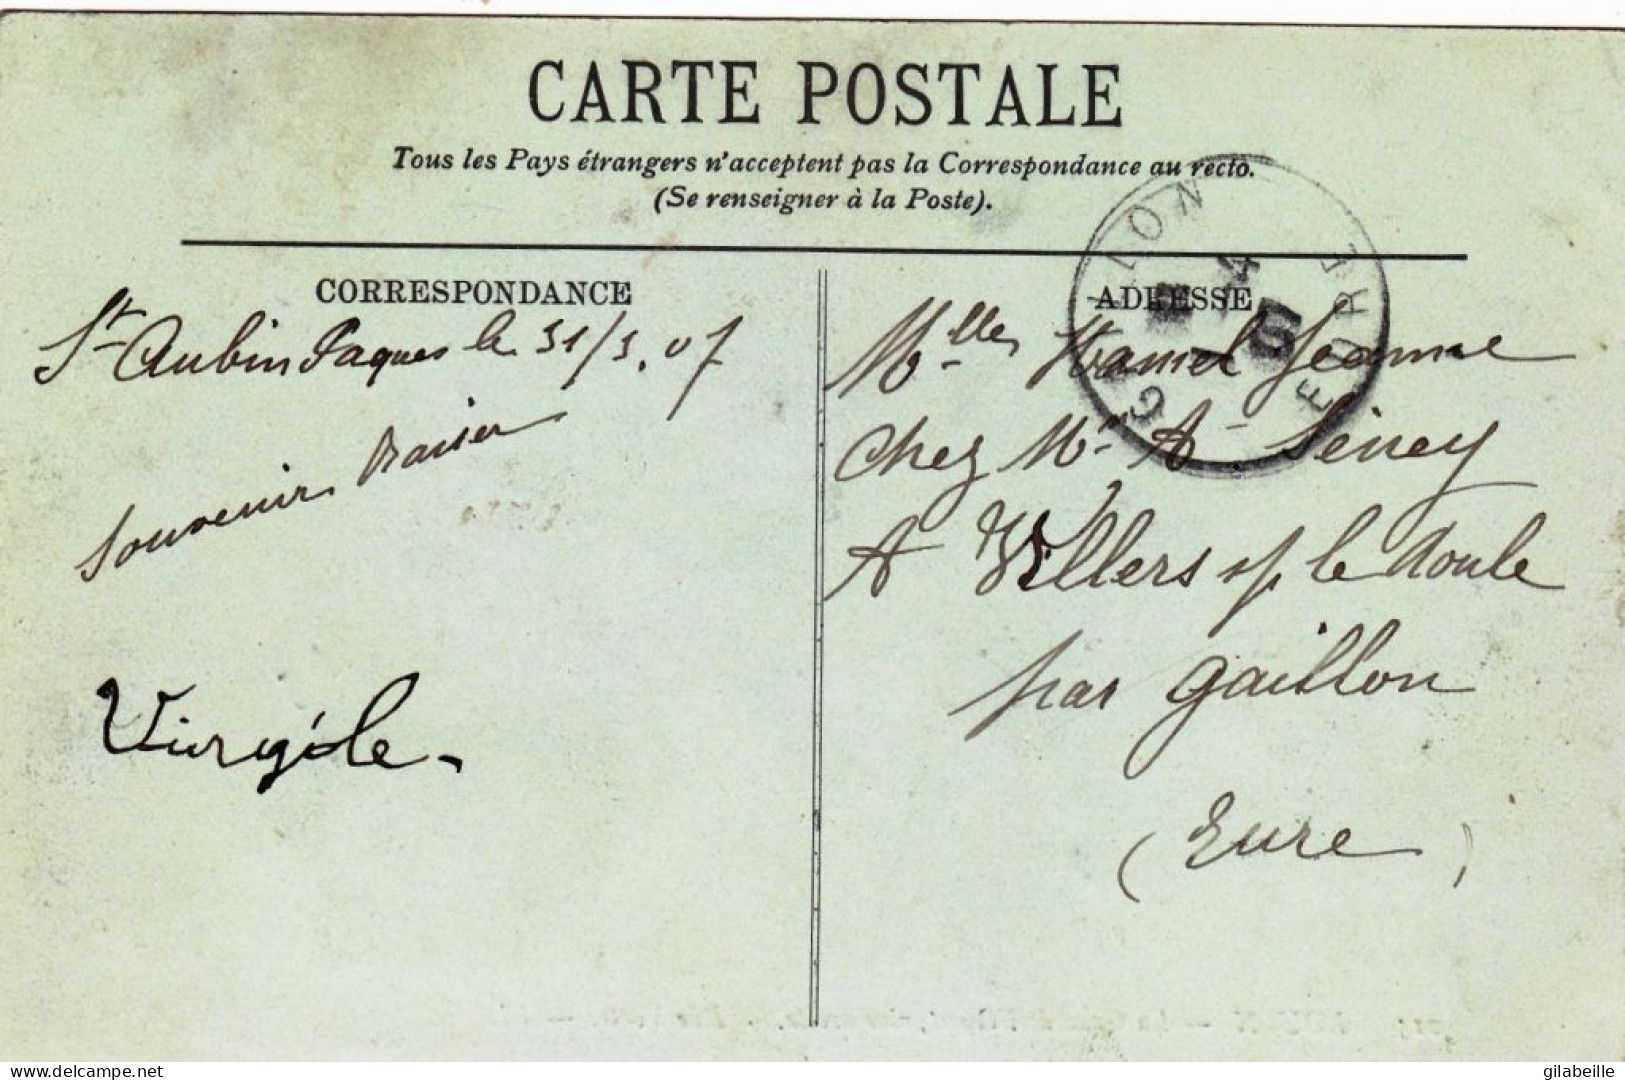 CARTE POSTALE
Tous les Pays étrangers n'acceptent pas la Correspondance au recto.
(Se renseigner à la Poste).
CORRESPONDANCE
St Aubin Paques le 31/3.07
Souvenir Baiser
Virgile
ADRESSE
Mlle Jeanne
Chez Mr A.
A Villers s/ le Roule
par Gaillon
(Eure)
EURE
delcampe.net
gilabeille